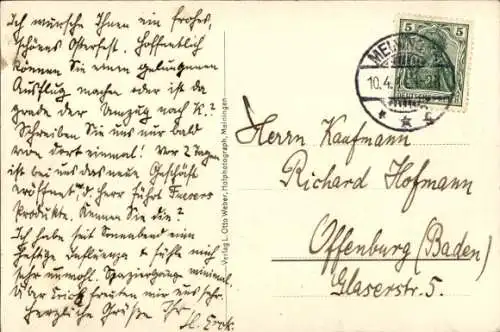 Ich wünsche Ihnen ein frohes,
schönes Osterfest. Hoffentlich
können Sie einen gelungenen
Ausflug machen oder ist da
grade der Umzug nach K.?
Schreiben Sie uns mir bald
von dort einmal! Vor 2 Tagen
ist bei uns das neue Geschäft
eröffnet, d. Herr führt
Produkte. Kennen Sie die?
Ich habe seit Sonnabend eine
heftige Influenza & fühle mich
sehr unwohl. Spaziergänge minimal.
Über freuten wir uns sehr.
Herzliche Grüße Ihr
Verlag L. Otto Weber, Hofphotograph, Meiningen
5 5
MEININGEN
10.4.
Herrn Kaufmann
Richard Hofmann
Offenburg (Baden)
Glaserstr. 5.